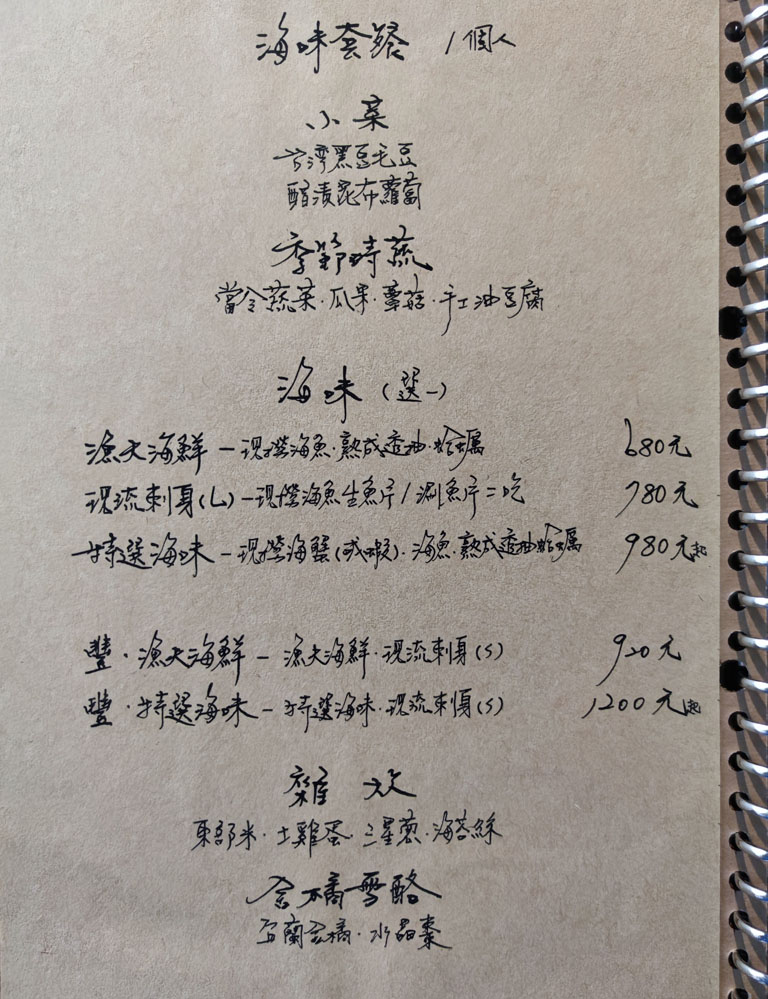 海味套餐 1個人
小菜
台灣黑豆毛豆
醋漬昆布蘿蔔
季節時蔬
當令蔬菜·瓜果·蕈菇·手工油豆腐
海味（選一）
漁夫海鮮－現撈海魚·熟成透抽·蛤蠣 680元
現流刺身(L)－現撈海魚生魚片/涮魚片二吃 780元
特選海味－現撈海蟹(或蝦)·海魚·熟成透抽蛤蠣 980元起
豐·漁夫海鮮－漁夫海鮮·現流刺身(S) 920元
豐·特選海味－特選海味·現流刺身(S) 1200元起
雜炊
東部米·土雞蛋·三星蔥·海苔絲
金橘雪酪
宜蘭金橘·水晶棗